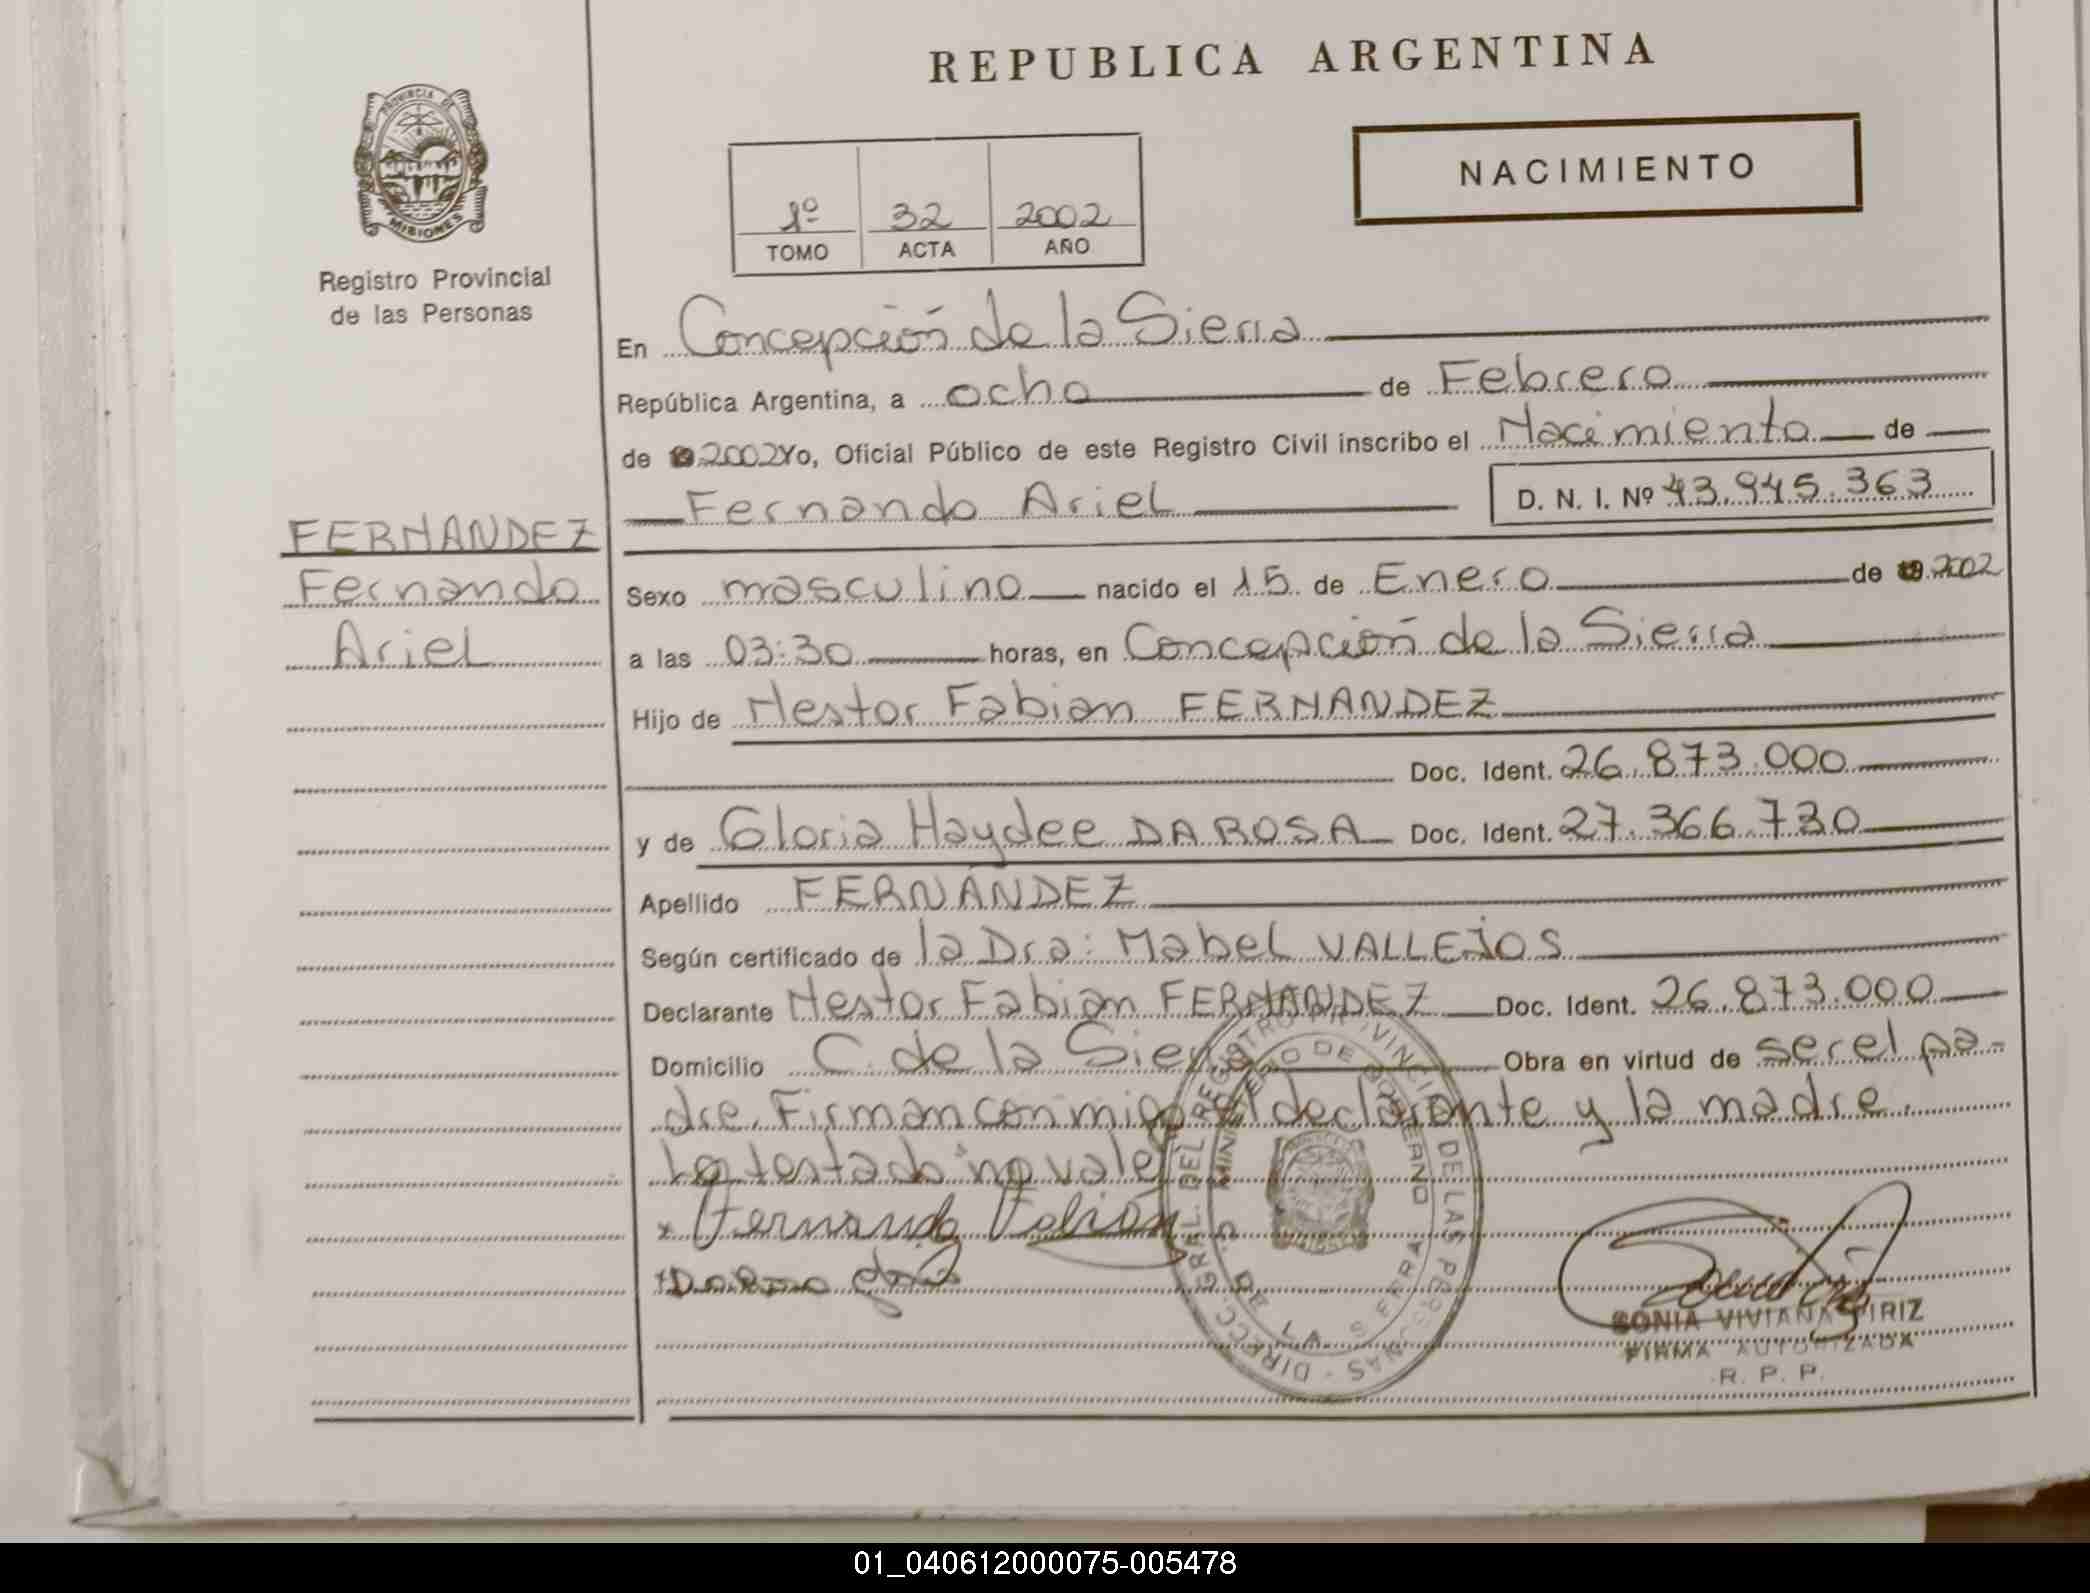 REPUBLICA ARGENTINA
PROVINCIA DE
MISIONES
Registro Provincial
de las Personas
1º 32 2002
TOMO ACTA AÑO
NACIMIENTO
En Concepción de la Sierra
República Argentina, a ocho de Febrero
de 2002 Yo, Oficial Público de este Registro Civil inscribo el Nacimiento de
Fernando Ariel D. N. I. Nº 43.945.363
FERNANDEZ
Fernando
Ariel
Sexo masculino nacido el 15 de Enero de 2002
a las 03:30 horas, en Concepción de la Sierra
Hijo de Nestor Fabian FERNANDEZ
Doc. Ident. 26.873.000
y de Gloria Haydee DA ROSA Doc. Ident. 27.366.730
Apellido FERNÁNDEZ
Según certificado de la Dra: Mabel VALLEJOS
Declarante Nestor Fabian FERNANDEZ Doc. Ident. 26.873.000
Domicilio C. de la Sierra Obra en virtud de ser el pa-
dre. Firman conmigo el declarante y la madre.
Lo testado no vale
x Fernando Fabián
x Da Rosa
DIRECC. GRAL. DEL REGISTRO PROVINCIAL DE LAS PERSONAS
MINISTERIO DE GOBIERNO
C. DE LA SIERRA
SONIA VIVIANA PIRIZ
FIRMA AUTORIZADA
R. P. P.
01_040612000075-005478